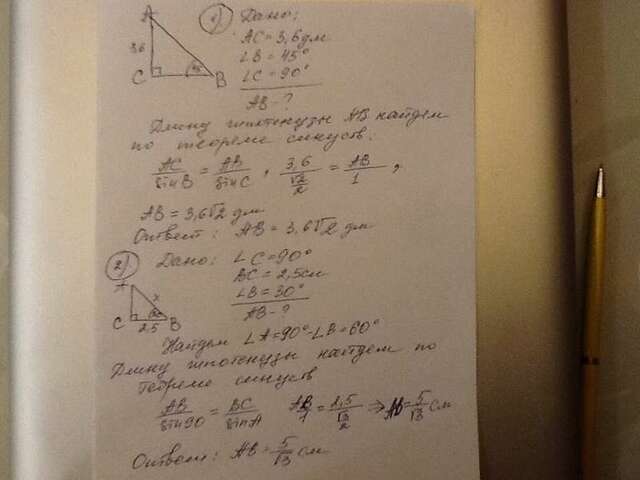 1) Дано:
A
AC = 3,6 дм
3,6
∠B = 45°
C B
∠C = 90°
AB - ?
Длину гипотенузы AB найдем
по теореме синусов:
AC/sinB = AB/sinC , 3,6/(√2/2) = AB/1 ,
AB = 3,6√2 дм
Ответ: AB = 3,6√2 дм
2) Дано: ∠C = 90°
BC = 2,5 см
A
x
∠B = 30°
C 2,5 B
AB - ?
Найдем ∠A = 90° - ∠B = 60°
Длину гипотенузы найдем по
теореме синусов
AB/sin90 = BC/sinA AB/1 = 2,5/(√3/2) ⇒ AB = 5/√3 см
Ответ: AB = 5/√3 см